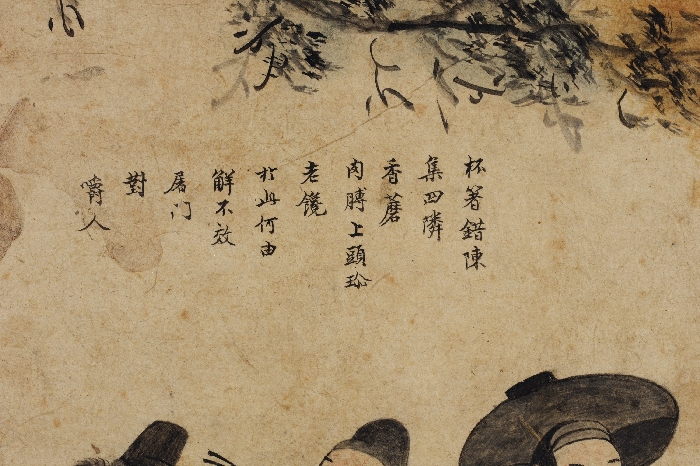 杯箸錯陳
集四隣
香蘑
肉膊上頭珍
老饞
於此何由
解不效
屠门
對
嚼人